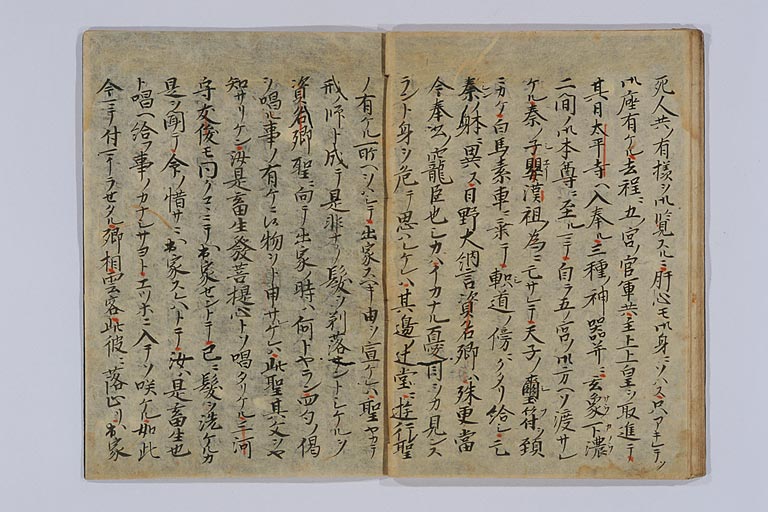 死人共ノ有様ヲ御覧スルニ肝心モ御身ニソハス只アキレテソ
御座有ケル去程ニ五宮官軍共主上上皇ヲ取進テ
其日太平寺ヘ入奉ル三種ノ神器并ニ玄象下濃
二間ノ御本尊ニ至ルニテ自ラ五ノ宮ノ御方ヘソ渡サレ
ケル秦ノ子嬰漢祖ノ為ニ亡サレテ天子ノ璽符ヲ頚
ニカケ白馬素車ニ乗テ軹道ノ傍ニクタリ給シ亡
秦ノ躰ニ異ス日野大納言資名卿ハ殊更當
今奉公ノ寵臣也シカハイカナル憂目ヲカ見ンス
ラント身ヲ危テ思ハレケレハ其邊ノ辻堂ニ遊行聖
ノ有ケル所ヘヲハシテ出家スヘキ由ヲ宣ケレハ聖ヤカテ
戒ノ師ト成テ是非ナク髪ヲ剃落サントシケルヲ
資名卿聖ニ向テ出家ノ時ハ何トヤラン四句ノ偈
ヲ唱ル事ノ有ケニ候物ヲト申サケレハ此聖其文ヲヤ
知サリケン汝是畜生發菩提心トソ唱タリケル三河
守友俊モ同クコヽニテ出家セントテ已ニ髪ヲ洗ケルカ
是ヲ聞テ命ノ惜サニ出家スレハトテ汝ハ是畜生也
ト唱ヘ給フ事ノカナシサヨトエツホニ入テソ咲ケル如此
今ニテ付テラセタル卿相雲客此彼ニ落止リ出家